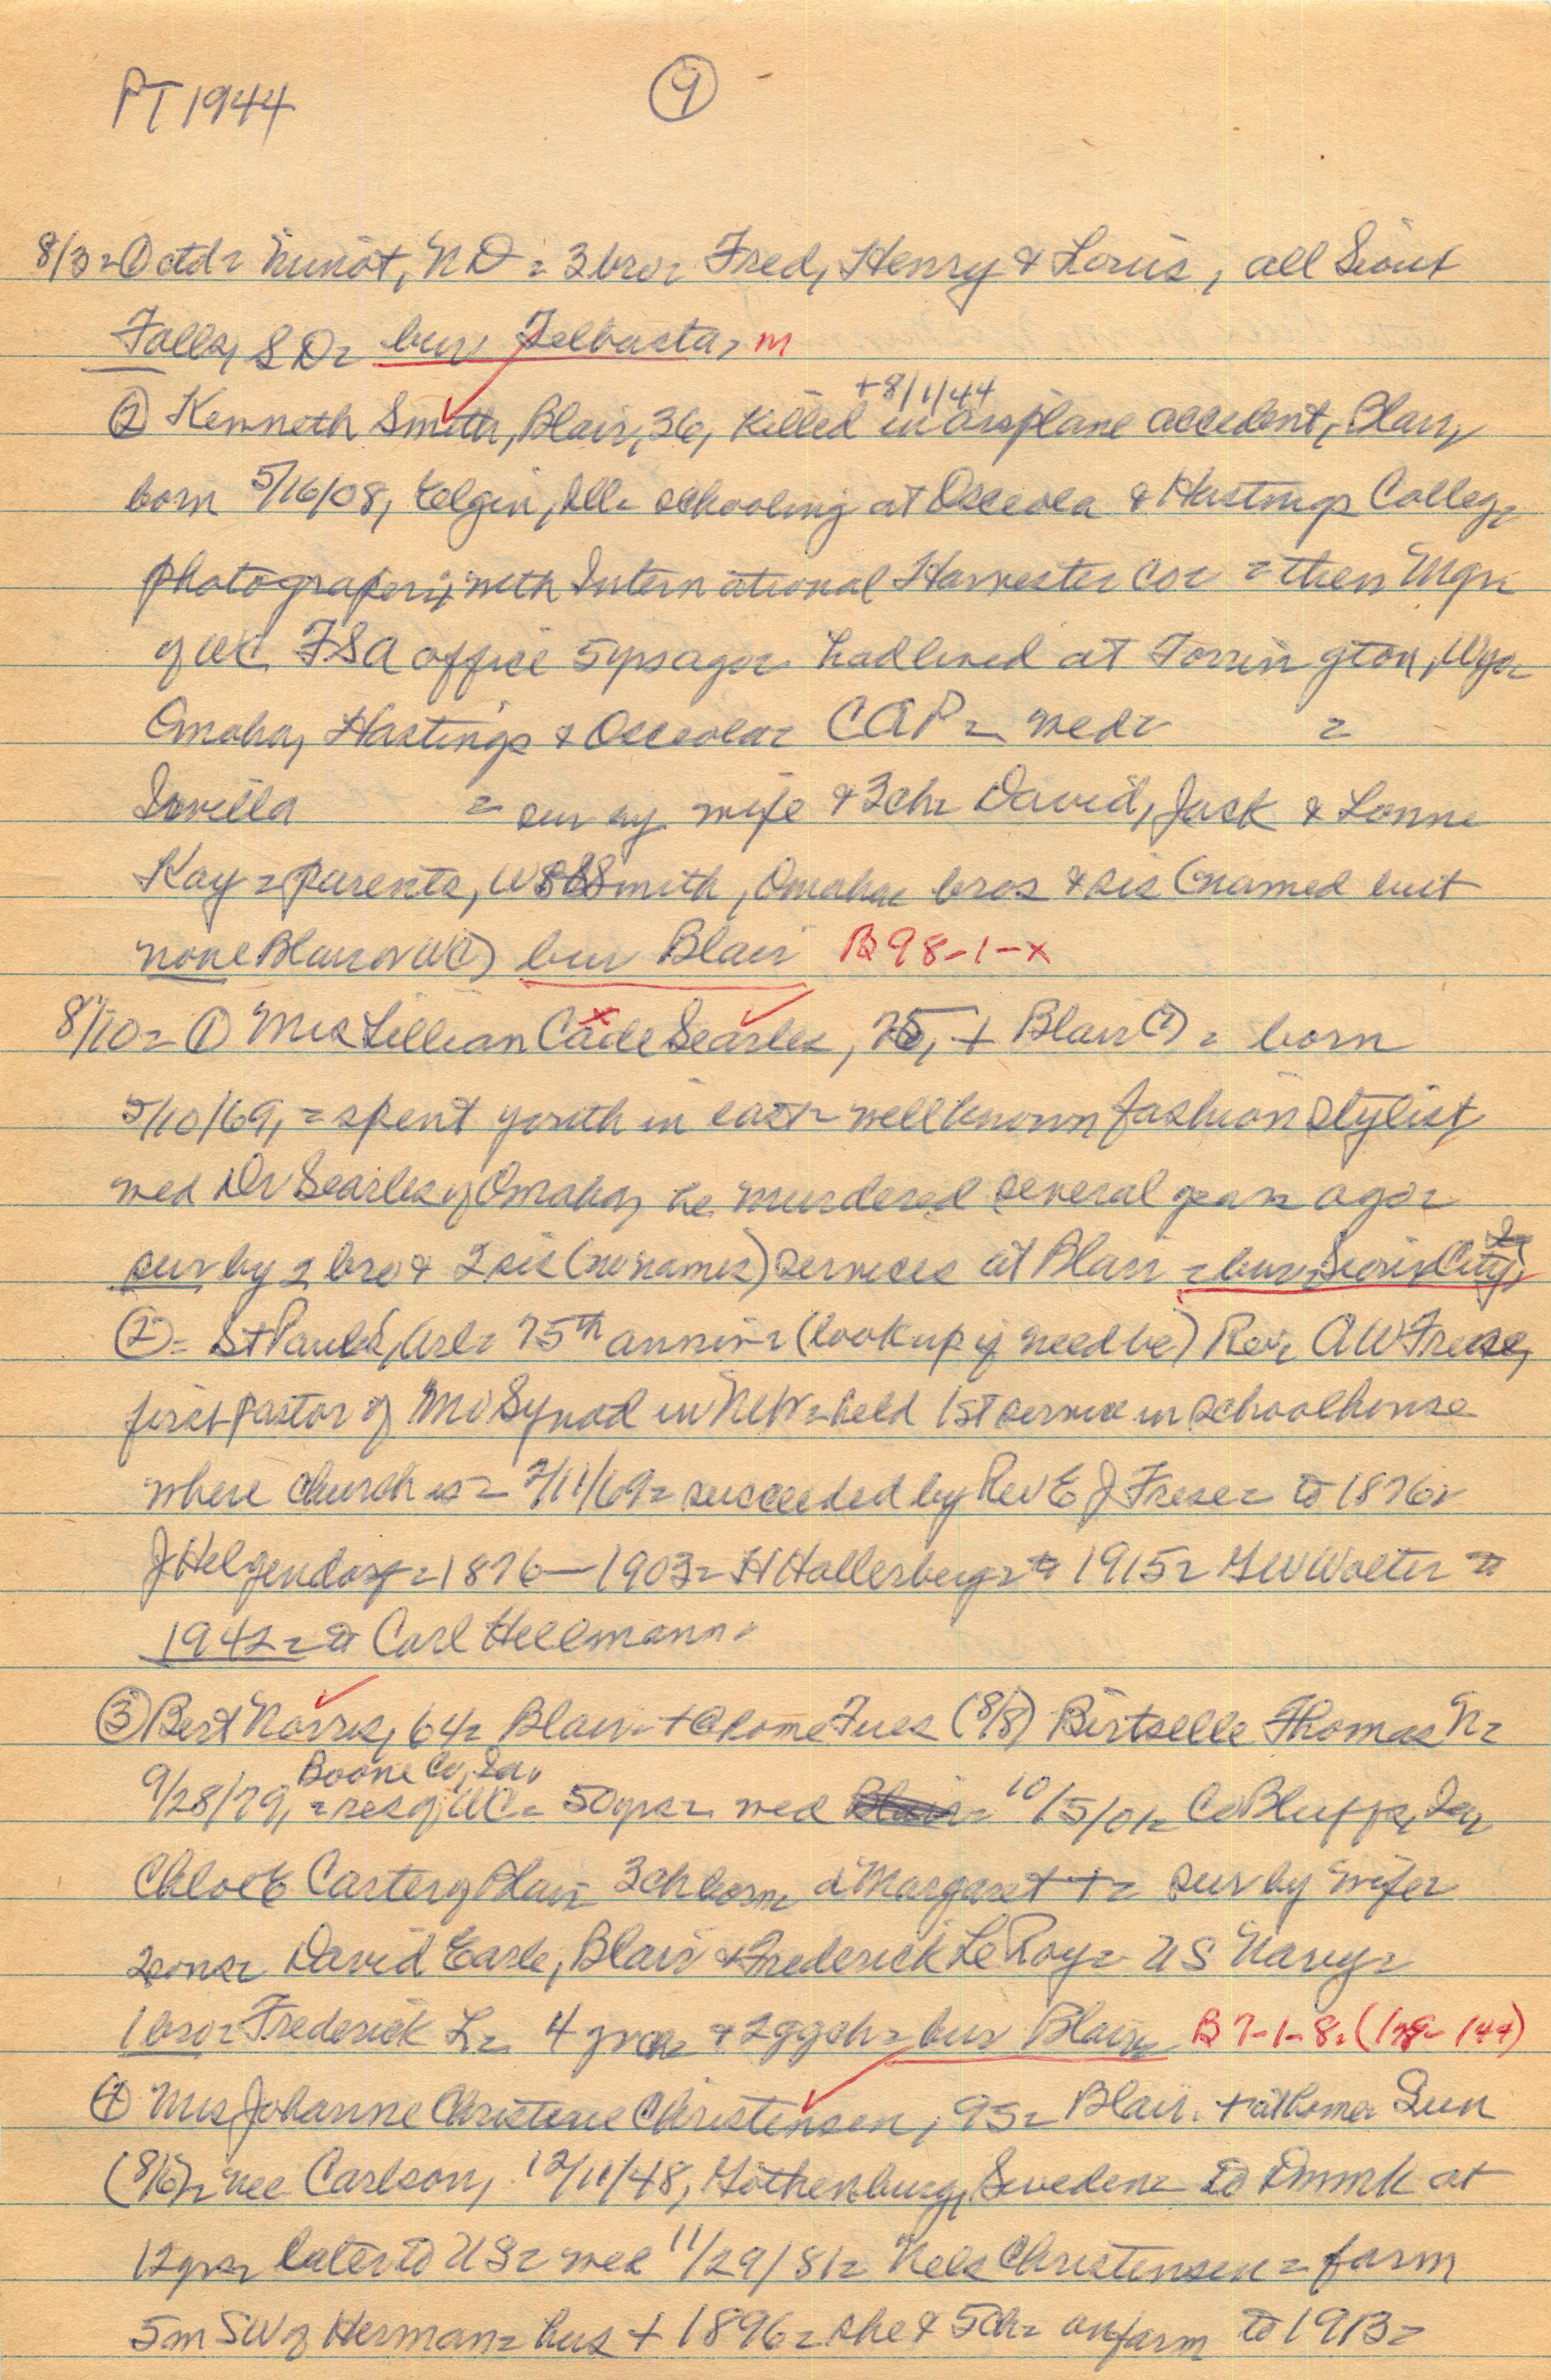 PT 1944
9
8/3 = ① ctd = Minot, ND = 3 bro = Fred, Henry & Louis, all Sioux
Falls, SD = bur Telbasta, m
+8/1/44
② Kenneth Smith, Blair, 36, killed in airplane accident, Blair,
born 5/16/08, Elgin, Ill = schooling at Osceola & Hastings College
photograper; with International Harvester Co = then Mgr
of WC FSA office 5 yrs ago = had lived at Torrington, Wyo
Omaha, Hastings & Osceola = CAP = wed = =
Lovilla = sur by wife & 3 ch = David, Jack & Lonne
Kay = parents, Smith, Omaha = bros & sis (named but
none Blair or WC) bur Blair B 98-1-x
8/10 = ① Mrs Lillian Cade Searles, 75, + Blair (?) = born
5/10/69, = spent youth in east = well known fashion stylist,
wed Dr Searles of Omaha, he murdered several years ago =
sur by 2 bro & 2 sis (no names) services at Blair = bur Sioux City, Ia
② = St Paul's, Arl = 75th anniv = (look up if need be) Rev AW Frese,
first pastor of Mo Synod in = held 1st service in schoolhouse
where church is = 7/11/69 = succeeded by Rev E J Frese = to 1876 =
J Helgendorf = 1876 — 1903 = H Hallerberg = to 1915 = GW Wolter to
1942 = to Carl Hellmann.
③ Bert Norris, 64 = Blair = + @ home Tues (8/8) Birtselle Thomas N =
Boone Co, Ia,
9/28/79, = res of WC = 50 yrs = wed 10/5/01 = Co Bluffs, Ia,
Chloe E Carter of Blair 3 ch born d Margaret + = sur by wife =
2 sons = David Earle, Blair & Frederick LeRoy = US Navy =
1 bro = Frederick L = 4 grch = & 2 ggch = bur Blair = B 7-1-8 = (179-144)
④ Mrs Johanne Christine Christensen, 95 = Blair. + at home Sun
(8/6) = nee Carlson, 12/11/48, Gothenburg, Sweden = to Dnmk at
12 yrs = later to US = wed 11/29/81 = Nels Christensen = farm
5 m SW of Herman = hus + 1896 = she & 5 ch = on farm to 1913 =